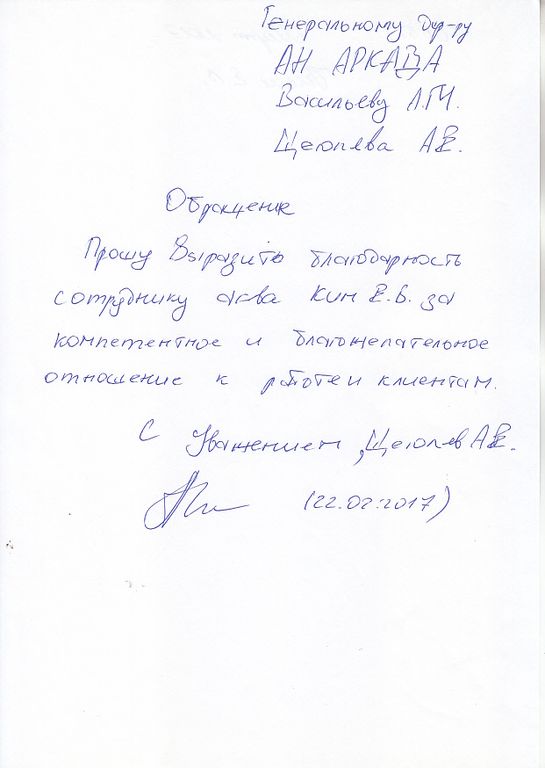 Генеральному дир-ру
АН АРКАДА
Васильеву Л.Г.
А.Е.
Обращение
Прошу Выразить благодарность
сотруднику Ким Е.Б. за
компетентное и благожелательное
отношение к работе и клиентам.
С Уважением, А.Е.
(22.02.2017)